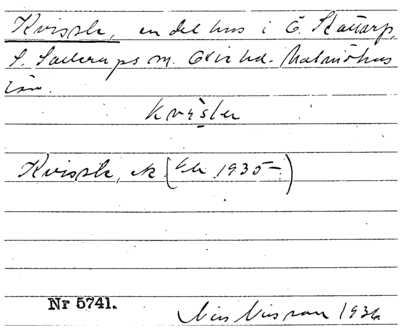 Kvissle, en del hus i Ö. Kattarp,
S. Sallerups sn. Oxie hd. Malmöhus
län.
Kvissle, ek (
1935-)
Nr 5741.
Nils Nilsson 1936